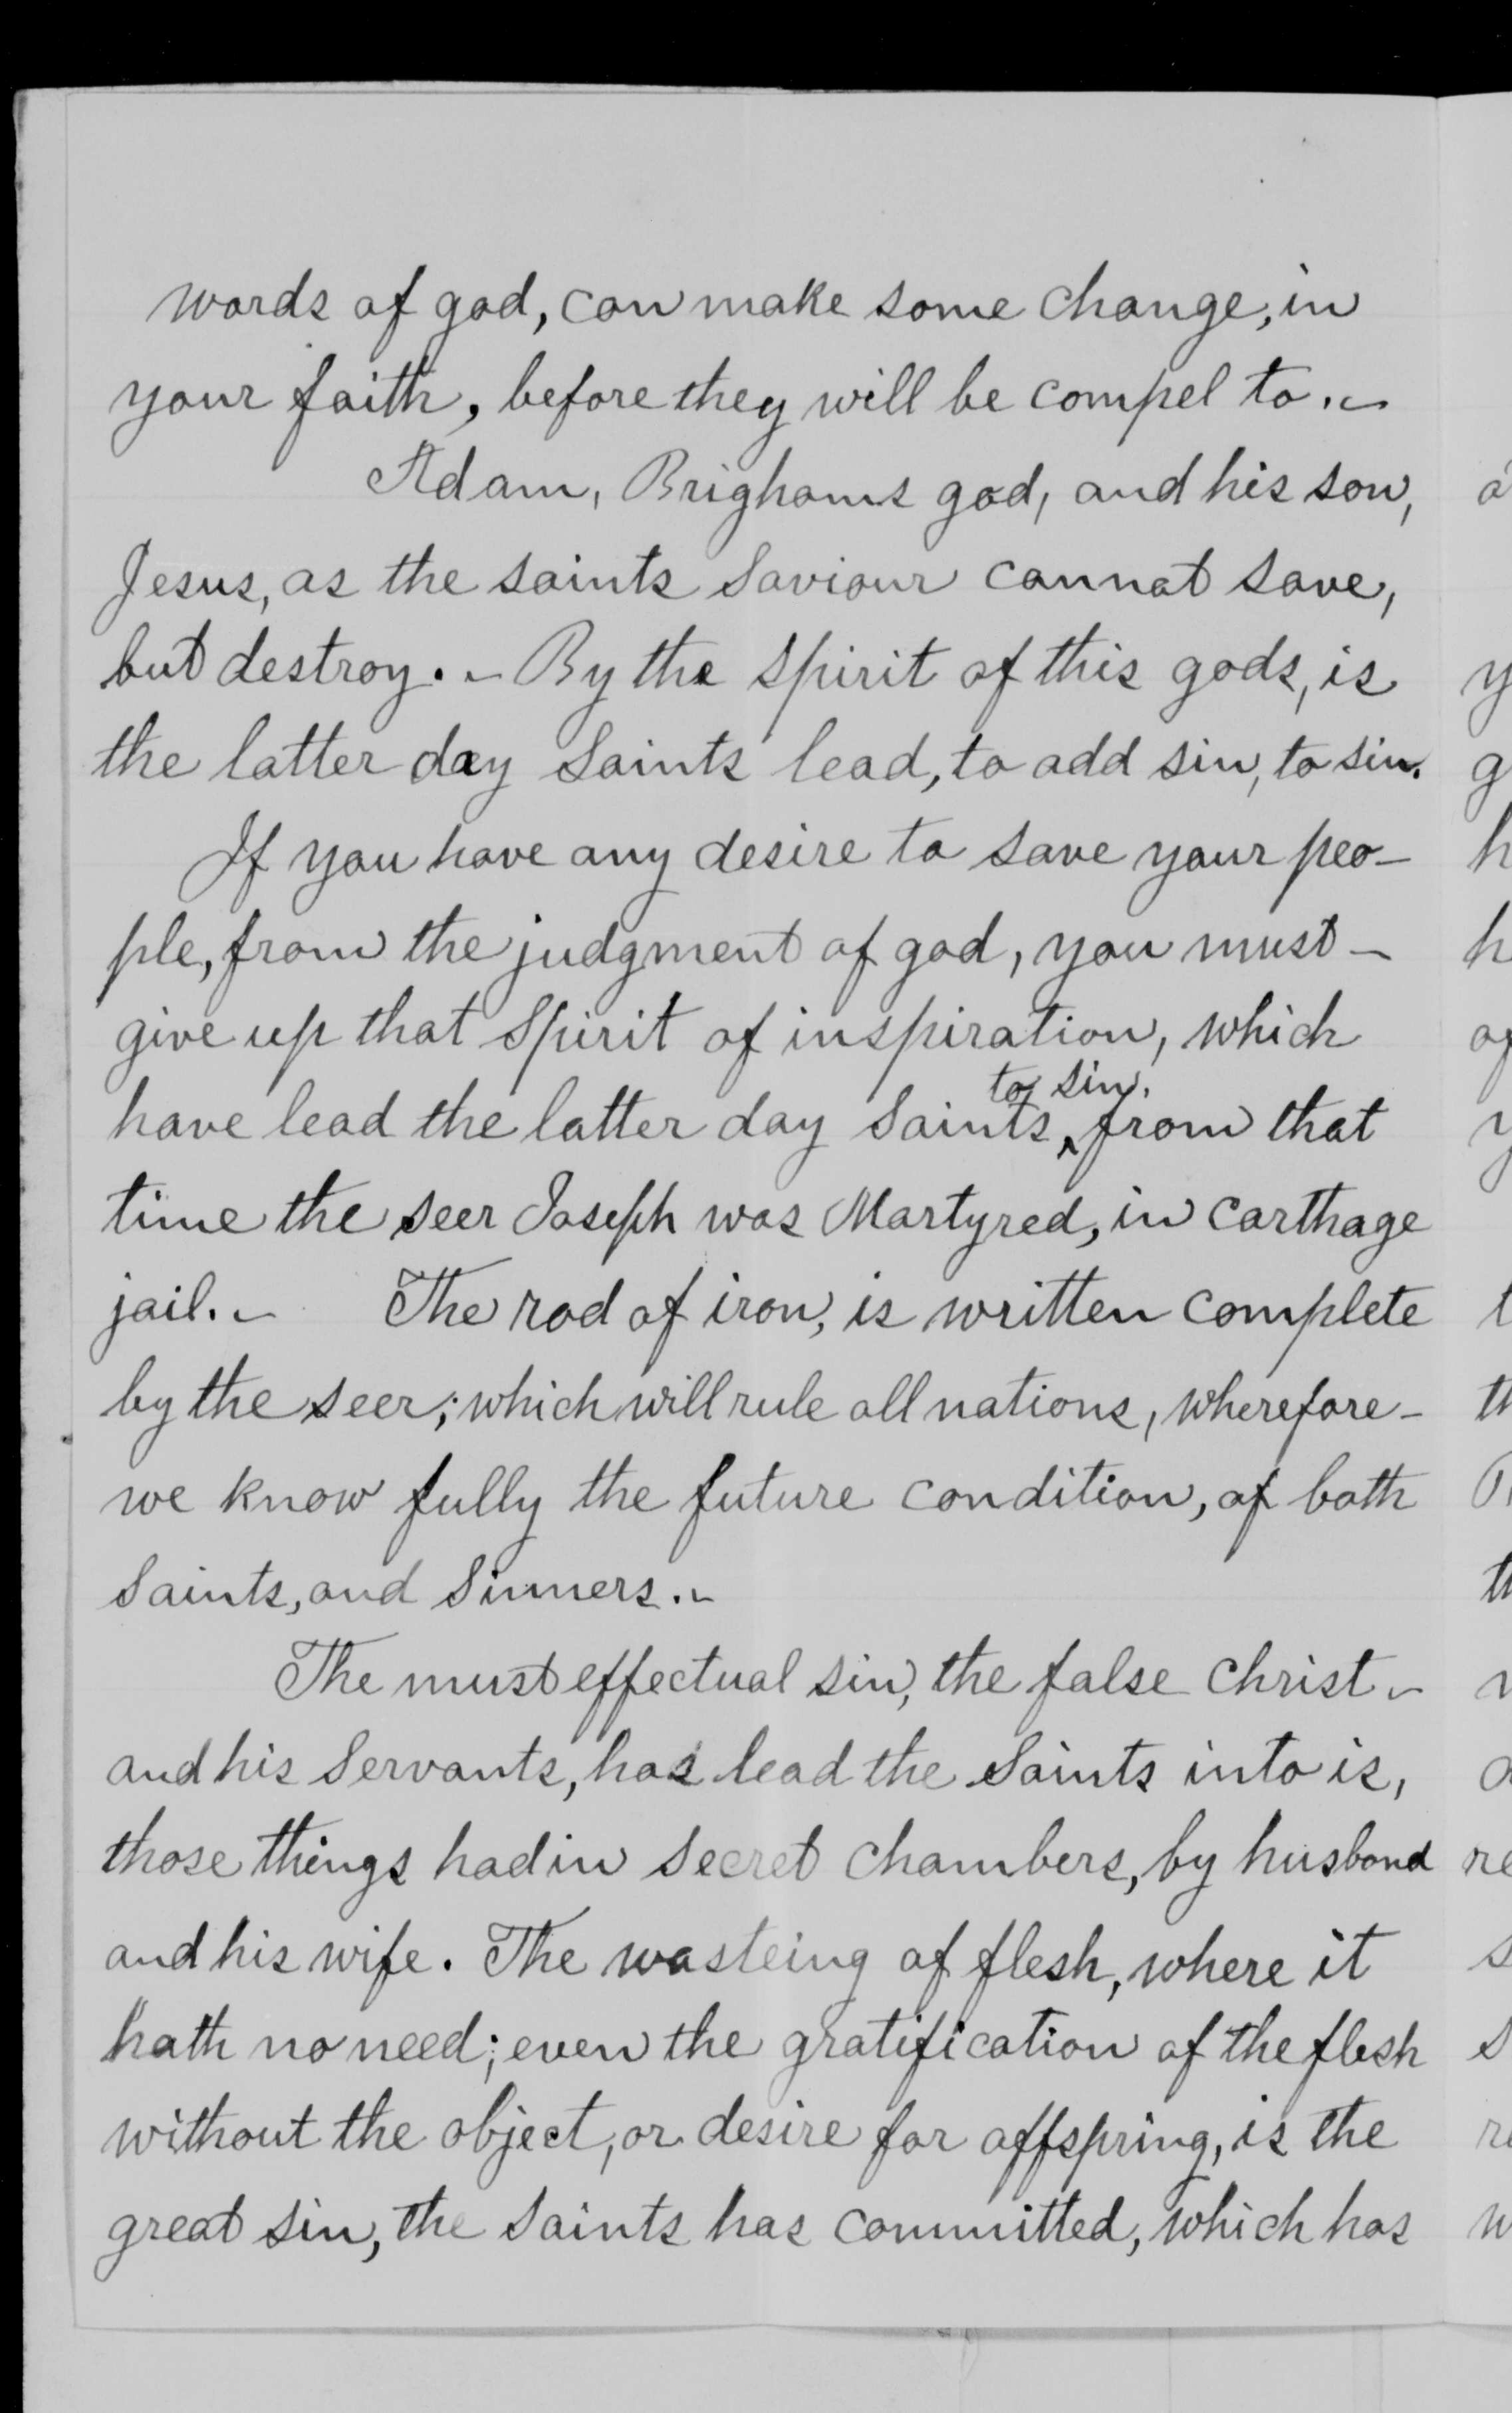 words of god, can make some change, in
your faith, before they will be compel to.~
Adam, Brighams god, and his son,
Jesus, as the saints Saviour cannot save,
but destroy.~ By the spirit of this gods, is
the latter day Saints lead, to add sin, to sin.
If you have any desire to save your peo-
ple, from the judgment of god, you must -
give up that spirit of inspiration, which
to sin.
have lead the latter day Saints ^ from that
time the seer Joseph was Martyred, in Carthage
jail.~ The rod of iron, is written complete
by the seer; which will rule all nations, wherefore -
we know fully the future condition, of both
Saints, and Sinners.~
The must effectual sin, the false christ ~
and his Servants, has lead the Saints into is,
those things had in Secret chambers, by husband
and his wife. The wasteing of flesh, where it
hath no need; even the gratification of the flesh
without the object, or desire for offspring, is the
great sin, the Saints has committed, which has